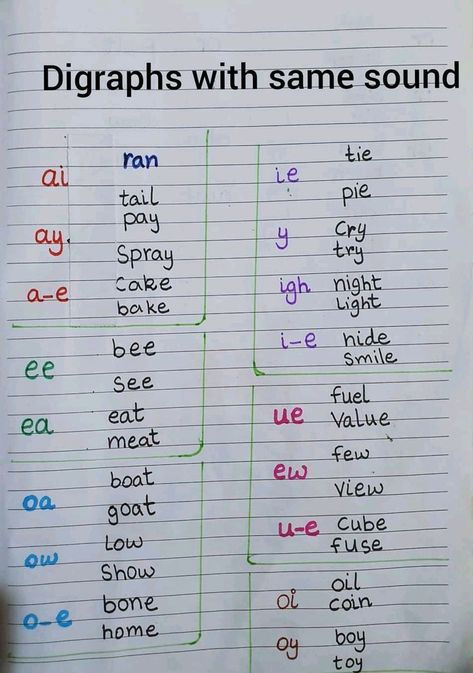 Digraphs with same sound
ai
ran
tail
ay.
pay
Spray
a-e
Cake
bake
ee
bee
see
ea
eat
meat
oa
boat
goat
ow
Low
Show
o-e
bone
home
ie
tie
pie
y
Cry
try
igh
night
Light
i-e
hide
smile
ue
fuel
Value
ew
few
view
u-e
Cube
fuse
oi
oil
coin
oy
boy
toy